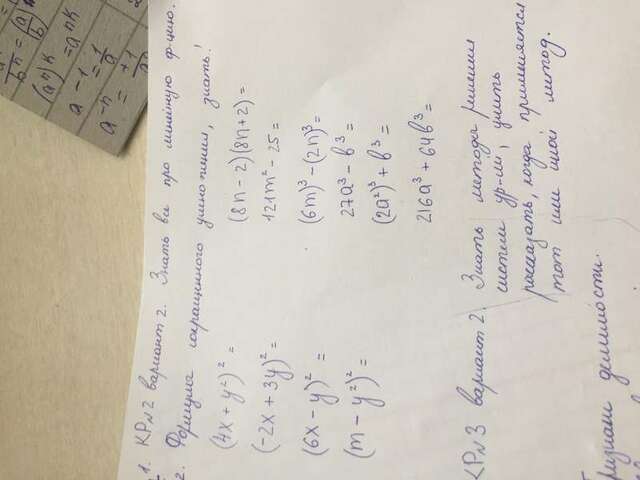 (aⁿ)ᵏ = aⁿᵏ
a⁻¹ = 1/a
a⁻ⁿ =
1. КР№2 вариант 2. Знать все про линейную ф-цию.
2. Формулы сокращенного умножения, знать!
(4x + y²)² =
(-2x + 3y)² =
(6x - y)² =
(m - y²)² =
(8n - 2)(8n + 2) =
121m² - 25 =
(6m)³ - (2n)³ =
27a³ - b³ =
(2a²)³ + b³ =
216a³ + 64b³ =
КР№3 вариант 2. Знать методы решения
систем ур-ий, уметь
рассказать, когда применяется
тот или иной метод.
Признаки делимости.